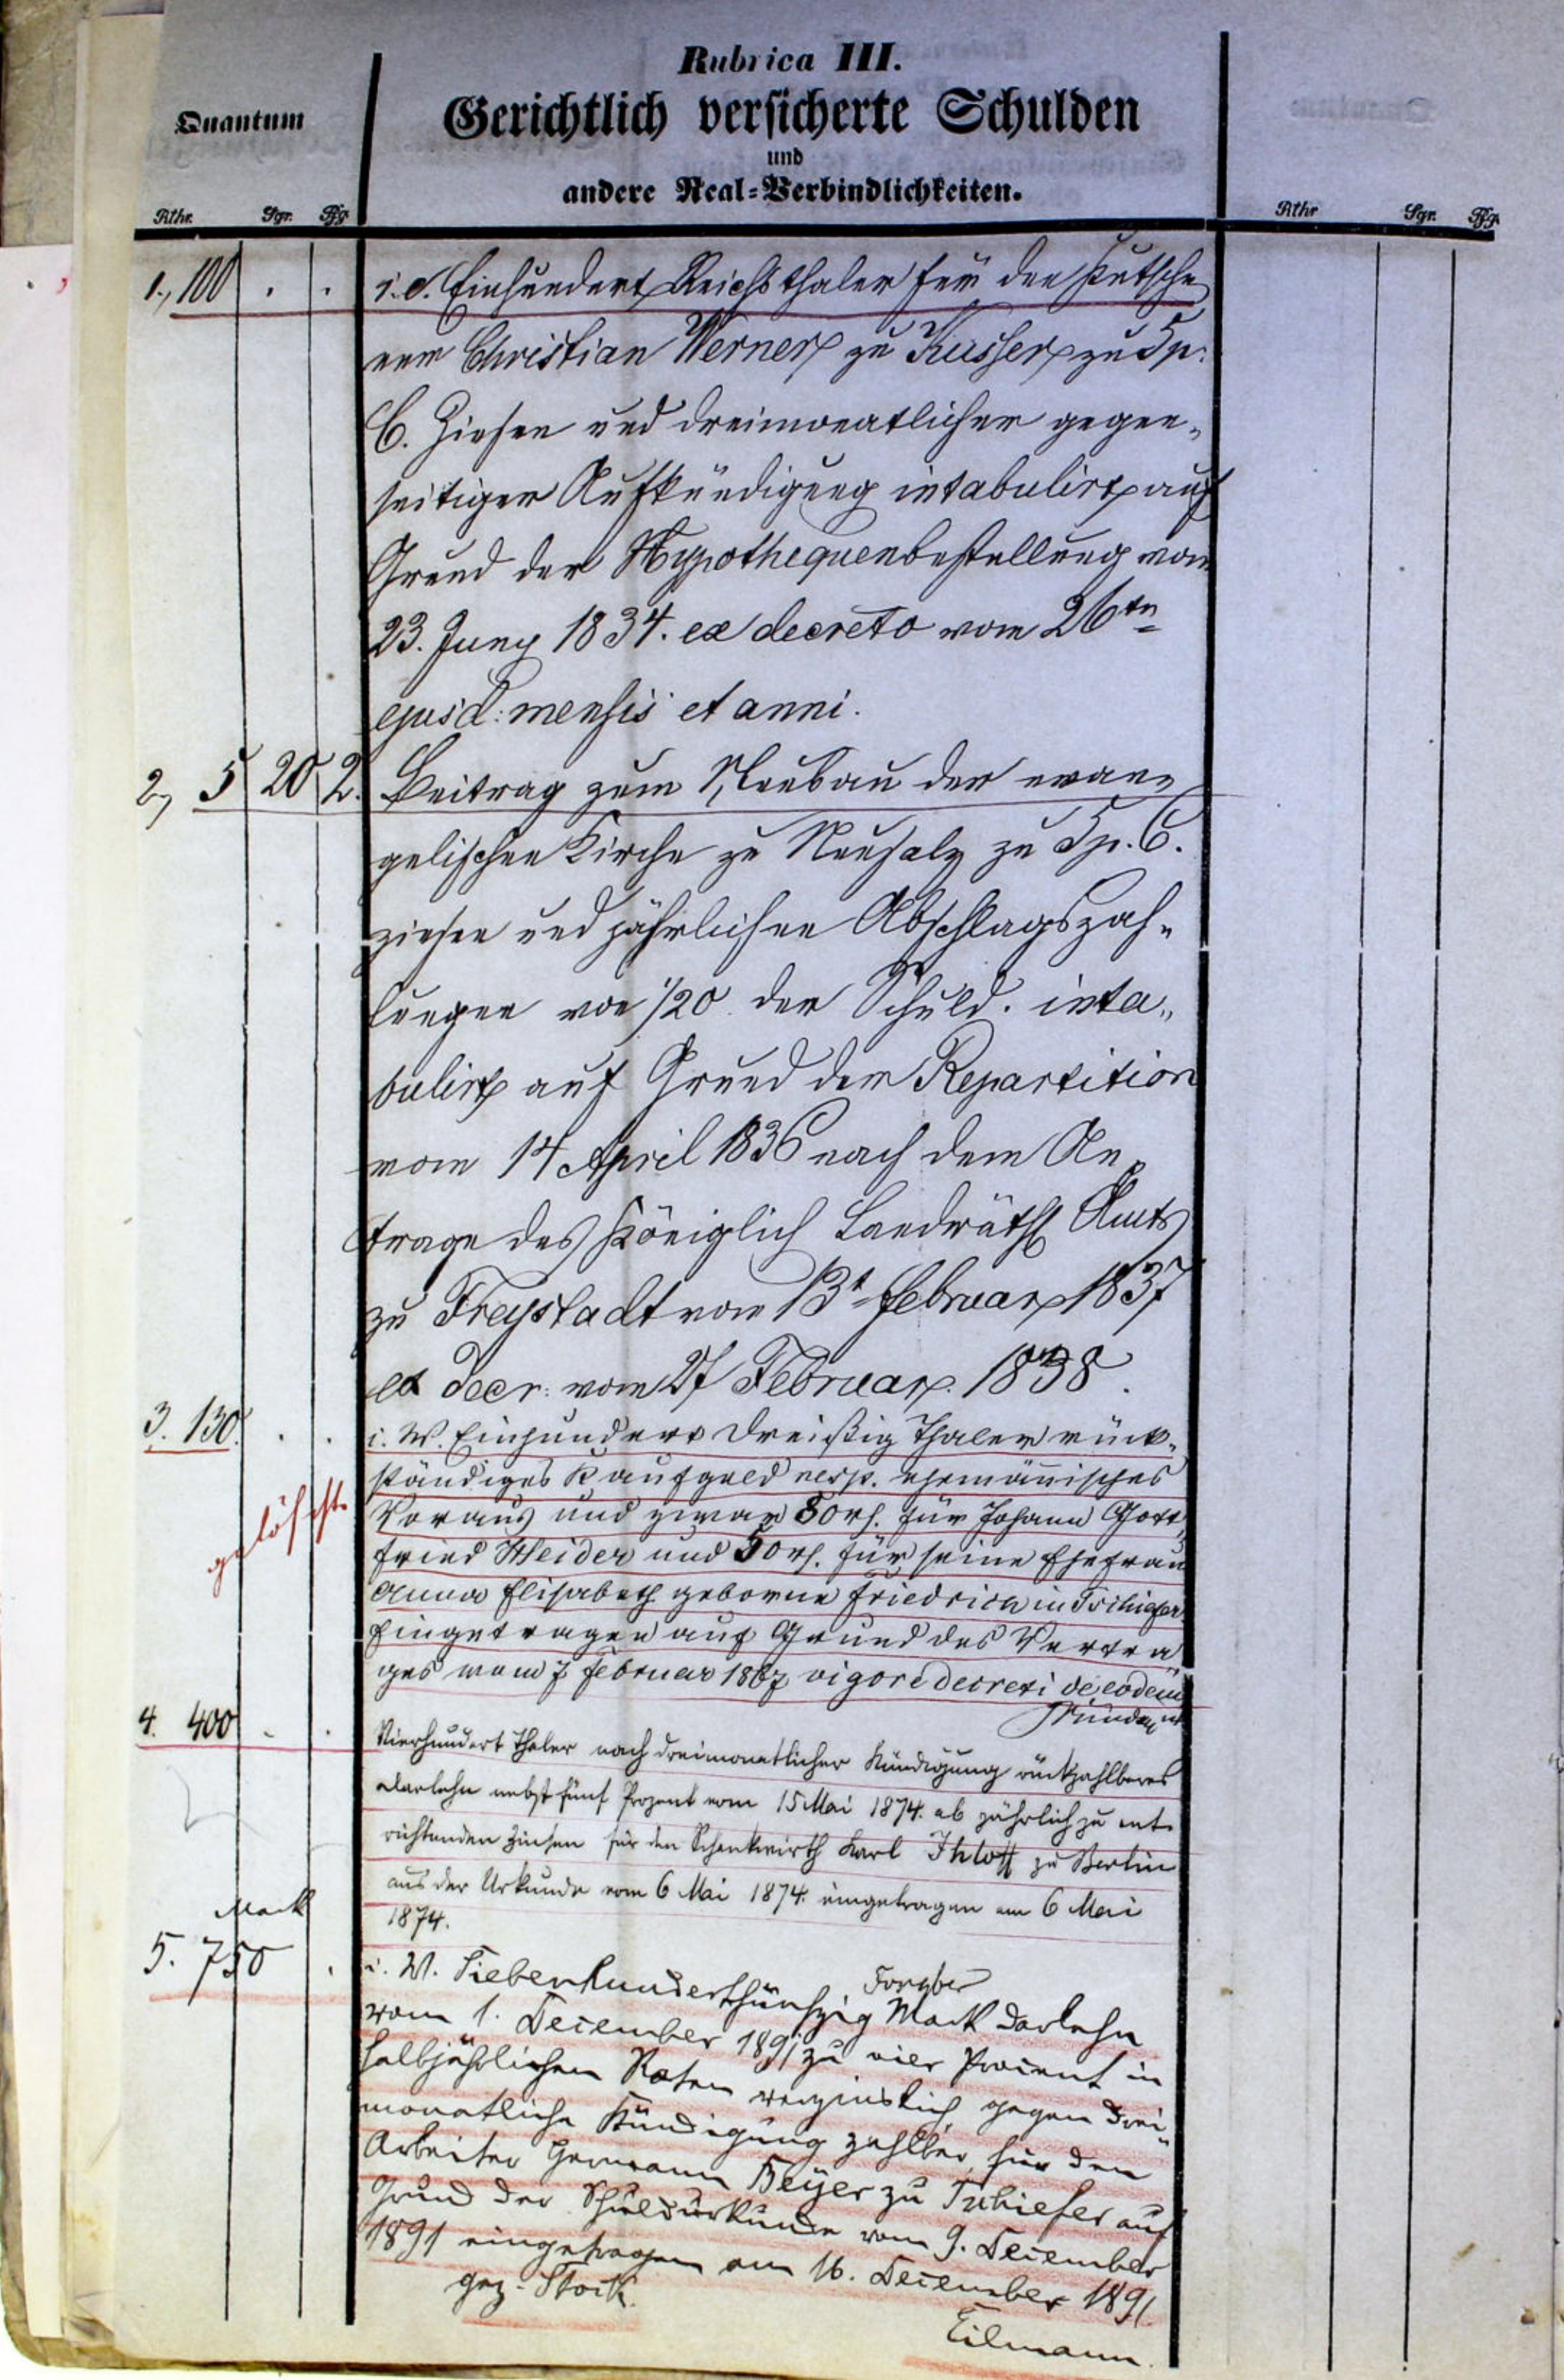 Rubrica III.
Quantum
Gerichtlich versicherte Schulden
und
andere Real=Verbindlichkeiten.
Rthr. Sgr. Pfg.
Rthr Sgr. Pfg.
1., 100 . . i. e. Einhundert Reichsthaler für den
ner Christian Werner zu Kusser zu 5 p.
C. Zinsen und dreimonatlicher gegen-
seitiger Aufkündigung intabulirt auf
Grund der Hypothequenbestellung vom
23. Juny 1834. ex decreto vom 26ten
ejusd: mensis et anni.
2, 5 20 2. Beitrag zum Neubau der evan-
gelischen Kirche zu Neusalz zu 5 p. C.
zinsen und jährlichen Abschlagszah-
lungen von 1/20 der Schuld. inta-
bulirt auf Grund der Repartition
vom 14 April 1836 nach dem An-
trage des Königlich Landräthl Amts
zu Freystadt vom 13t Februar 1837
ex decr: vom 27 Februar 1838.
3. 130. . . i. W. Einhundert dreißig Thaler rück-
ständiges Kaufgeld resp. ehemännisches
gelöscht.
Voraus und zwar 80 rh. für Johann Gott-
fried Heider und 50 rh. für seine Ehefrau
Anna Elisabeth geborne Friedrich in Tschiefer
Eingetragen auf Grund des Vertra-
ges vom 7. Februar 1867 vigore decreti de eodem
4. 400 . . Vierhundert Thaler nach dreimonatlicher Kündigung rückzahlbares
Darlehn nebst fünf Prozent vom 15 Mai 1874. ab jährlich zu ent-
richtenden Zinsen für den Schankwirth Karl Ihloff zu Berlin
aus der Urkunde vom 6 Mai 1874. eingetragen am 6 Mai
1874.
Mark
5. 750 . i. W. Siebenhundertfünfzig Mark Darlehn
vom 1. December 1891 zu vier Procent in
halbjährlichen Raten verzinslich, gegen drei-
monatliche Kündigung zahlbar, für den
Arbeiter Hermann Beyer zu Tschiefer auf
Grund der Schuldurkunde vom 9. December
1891 eingetragen am 16. December 1891.
gez. Stock. Eilmann.